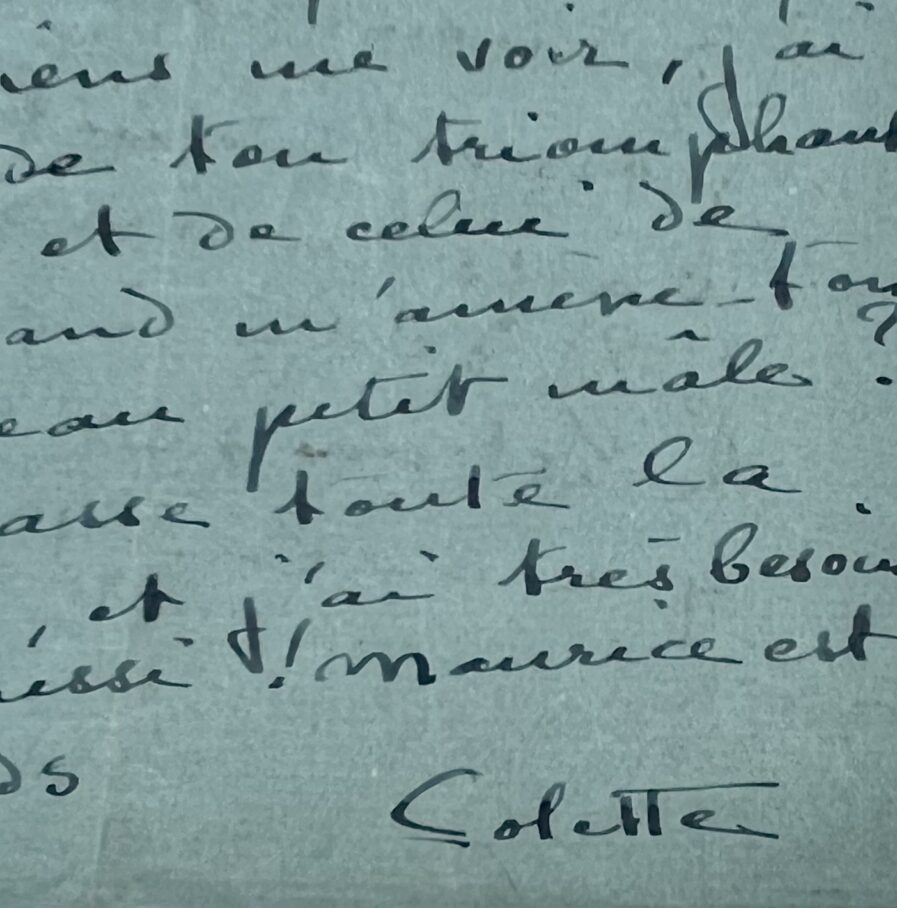 iens me voir, j'ai
de ton triomphant
et de celui de
and m'amène-t-on
eau petit mâle ?
asse toute la
, et j'ai très besoin
ussi ! Maurice est
ds
Colette